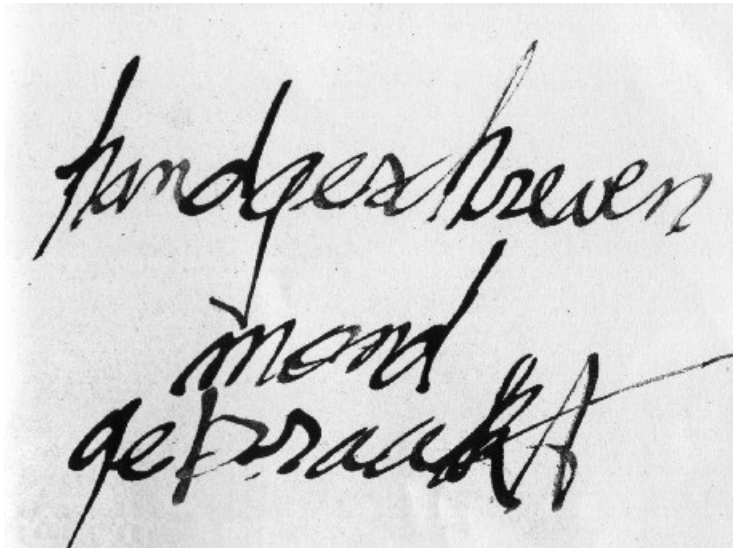 handgeschreven
mond
gebraakt